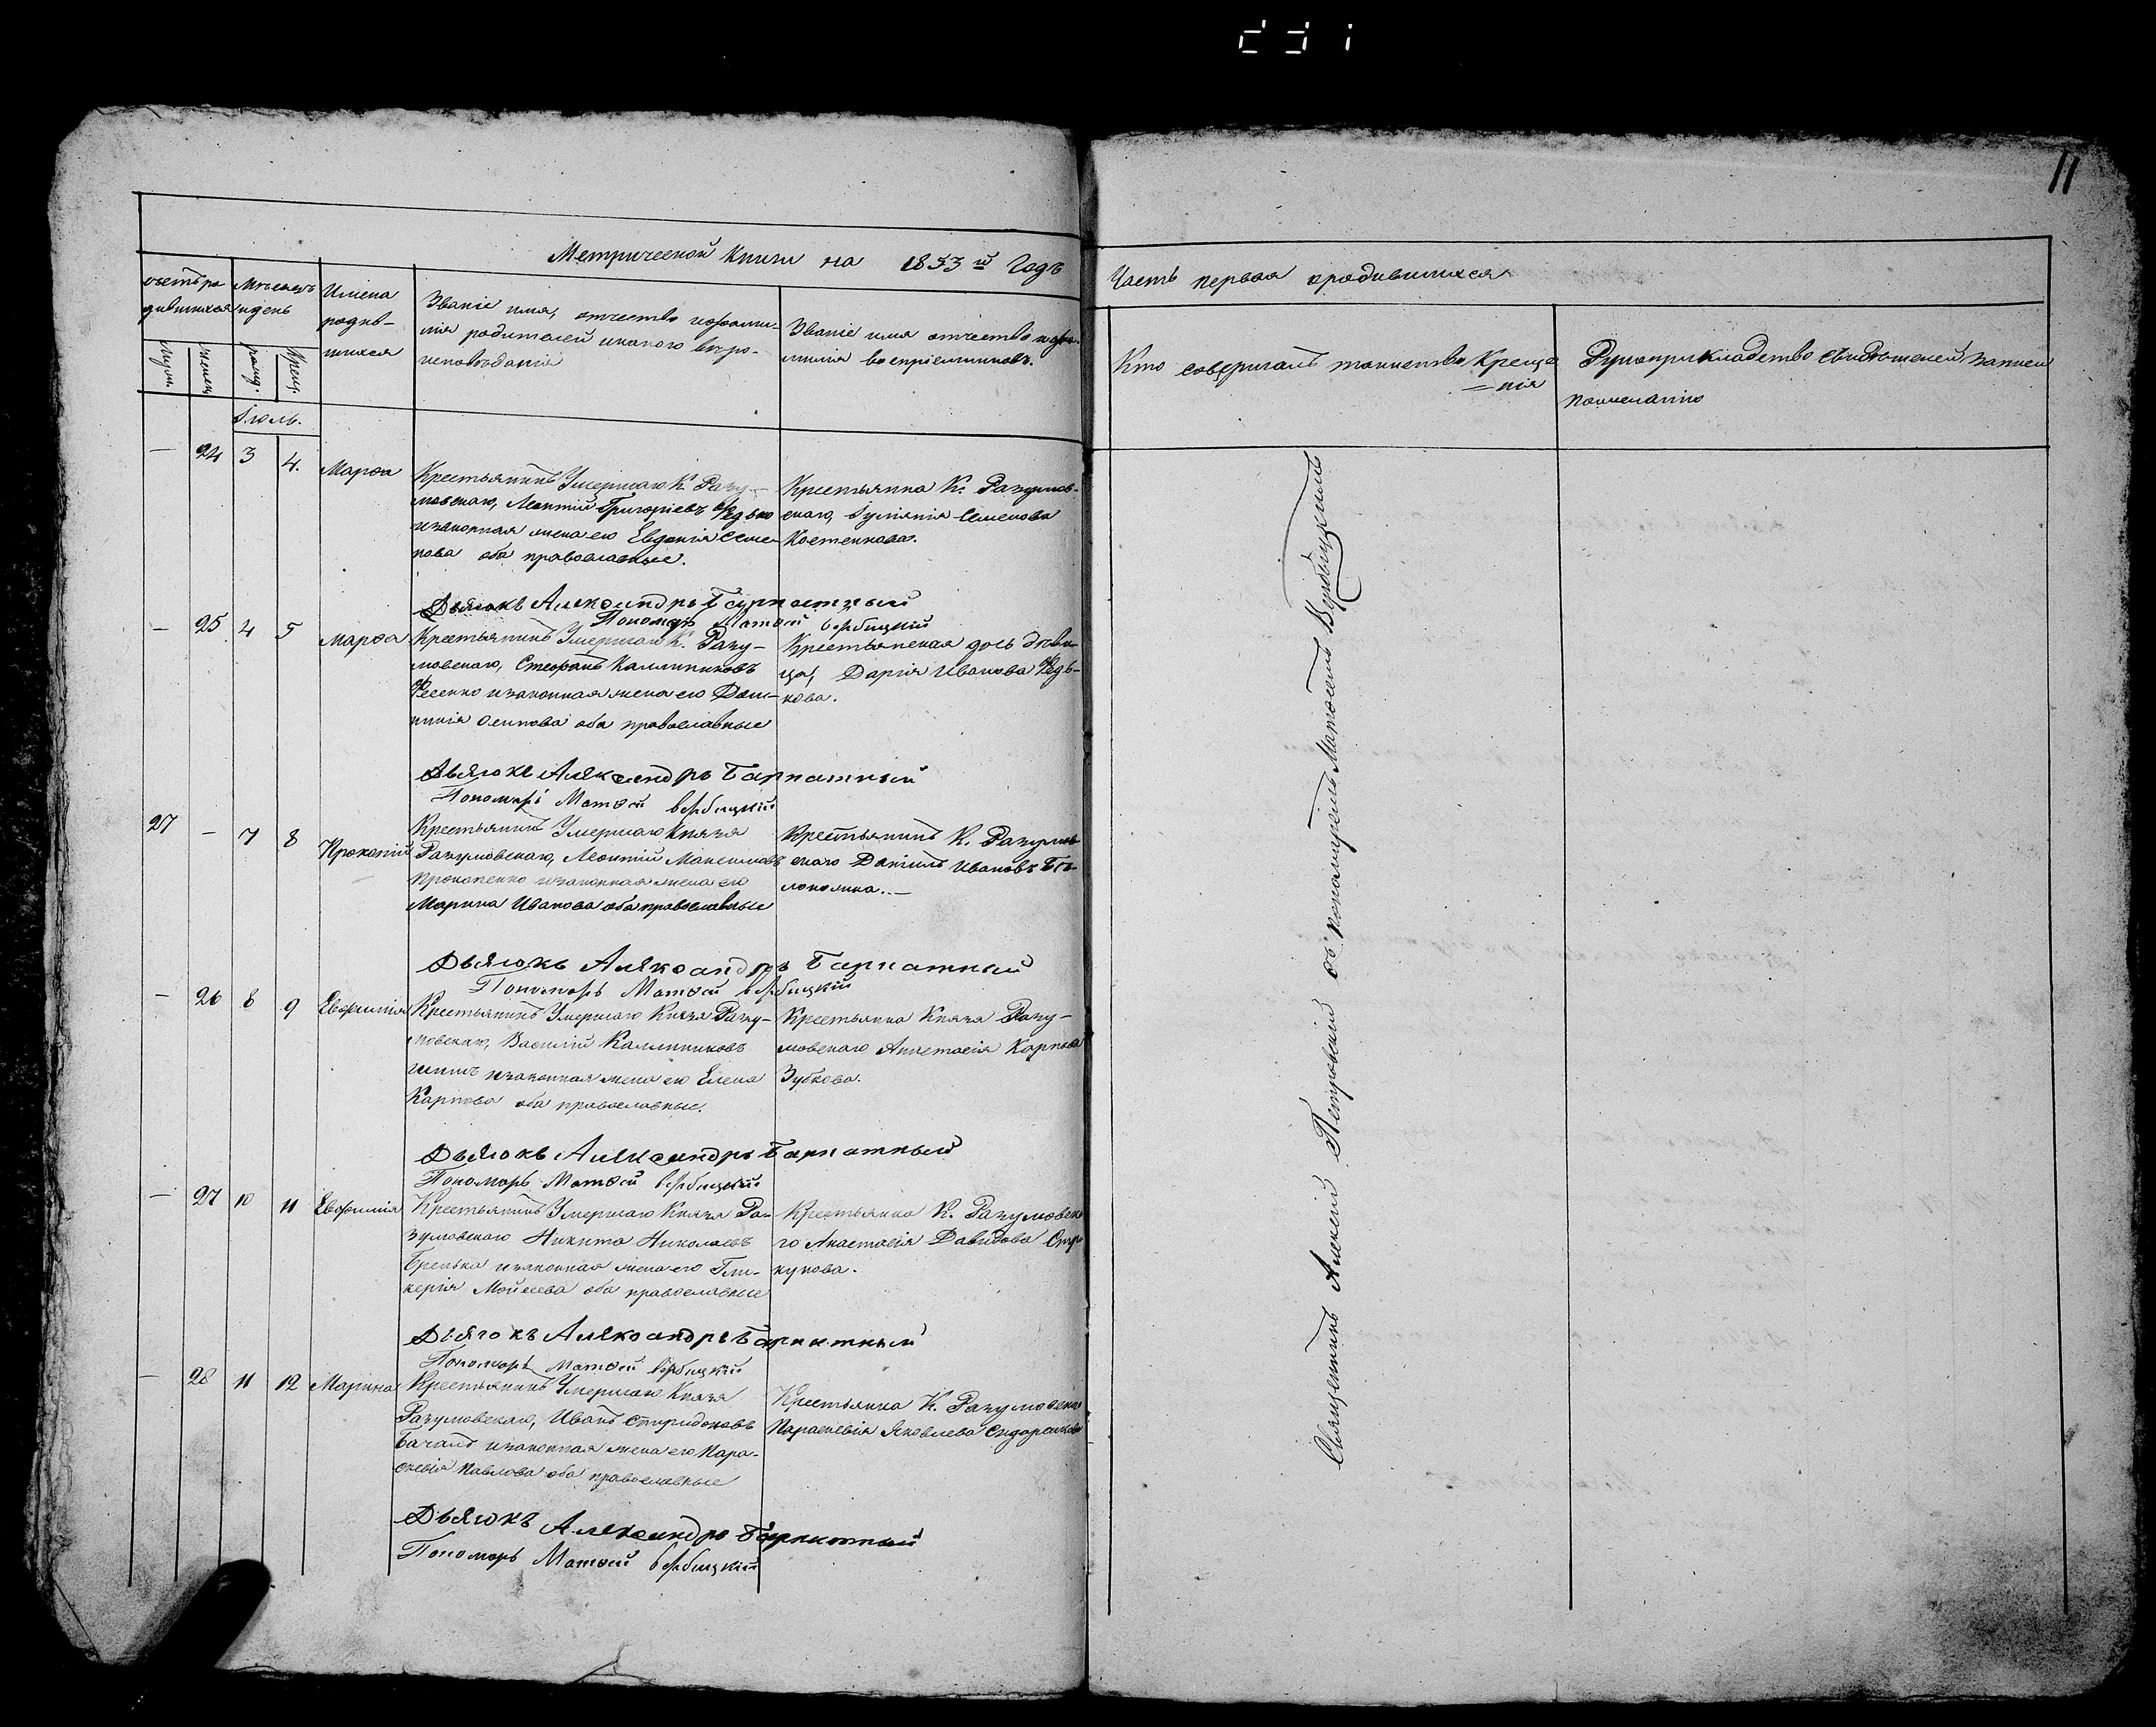 11
Метрической Книги на 1853й Годъ
Часть первая ородившихся
счетъ ро
дившихся
Муж.
Женск.
Мѣсяцъ
идень
рожд.
Крещ.
Имена
родив-
шихся
Званіе имя, отчество ифами-
лія родителей икакого вѣро-
исповѣданія
Званіе имя отчество ифа-
милія воспріемниковъ.
Кто совершалъ таинство Креще
=нія
Рукоприкладство свидѣтелей записи
Іюль.
— 24 3 4. Марѳа
Крестьянинъ Умершаго К. Разу-
мовскаго, Леонтій Григоріевъ Редько
изаконная жена его Евдокія Семе-
нова оба православные.
Крестьянка К. Разумов-
скаго, Іуліянія Семенова
Костенкова.
Дьячокъ Александръ Барпатный
Пономарь Матѳей Вербицкій
— 25 4 5 Марѳа
Крестьянинъ Умершаго К. Разу-
мовскаго, Стефанъ Каллиниковъ
Фесенко изаконная жена его Дом-
никія Осипова оба православные
Крестьянская дочь дѣви-
ца, Дарія Иванова Редь-
кова.
Дьячокъ Александръ Барпатный
Пономарь Матѳей Вербицкій
27 — 7 8 Прокопій
Крестьянинъ Умершаго Князя
Разумовскаго, Леонтій Максимовъ
Прокопенко изаконная жена его
Марина Иванова оба православные
Крестьянинъ К. Разумов-
скаго Даніилъ Ивановъ Бѣ-
локонка.—
Дьячокъ Александръ Барпатный
Пономарь Матѳей Вербицкій
— 26 8 9 Евфимія
Крестьянинъ Умершаго Князя Разу-
мовскаго, Василій Каллиниковъ
изаконная жена его Елена
Карпова оба православные.
Крестьянка Князя Разу-
мовскаго Анастасія Карпова
Зубкова.
Дьячокъ Александръ Барпатный
Пономарь Матѳей Вербицкій
— 27 10 11 Евфимія
Крестьянинъ Умершаго Князя Ра-
зумовскаго Никита Николаевъ
Гренька изаконная жена его Гли-
керія Мойсеева оба православные
Крестьянка К. Разумовска
го Анастасія Давидова
кунова.
Дьячокъ Александръ Барпатный
Пономарь Матѳей Вербицкій
— 28 11 12 Марина
Крестьянинъ Умершаго Князя
Разумовскаго, Иванъ Спиридоновъ
Бачалъ изаконная жена его Пара-
скевія Павлова оба православные
Крестьянка К. Разумовска
Параскевія Яковлева Сидоренкова
Дьячокъ Александръ Барпатный
Пономарь Матѳей Вербицкій
Священникъ Алексій Петровскій съ пономаремъ Матѳеемъ Вербицкимъ